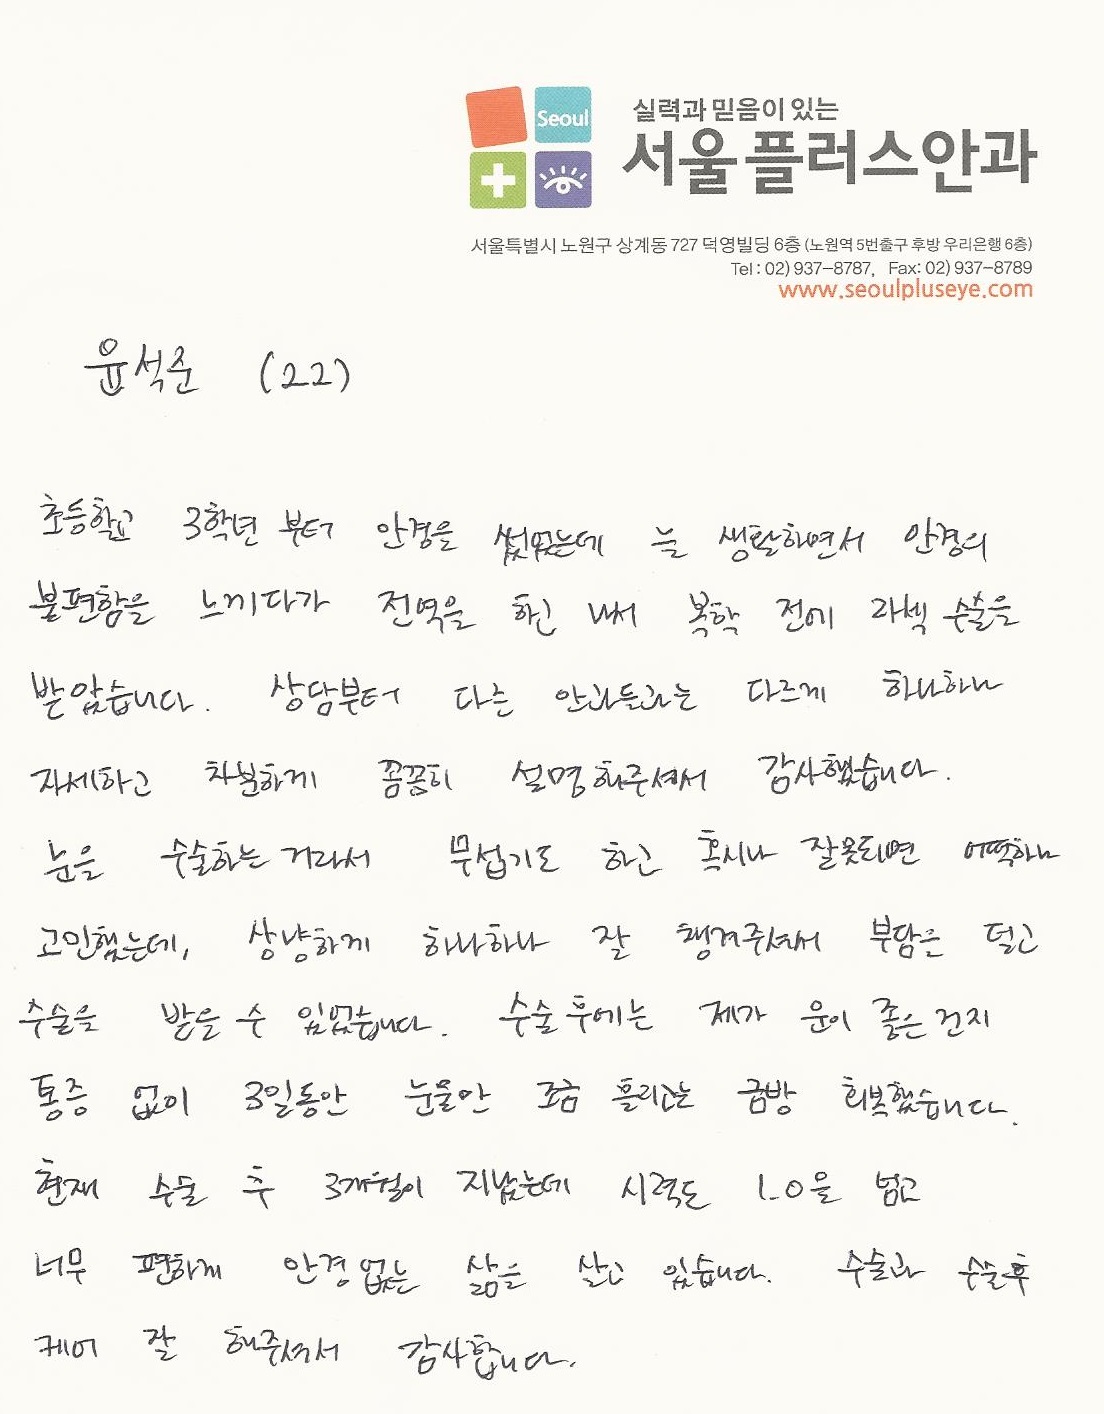 Seoul
실력과 믿음이 있는
서울플러스안과
서울특별시 노원구 상계동 727 덕영빌딩 6층 (노원역 5번출구 후방 우리은행 6층)
Tel : 02) 937-8787, Fax: 02) 937-8789
www.seoulpluseye.com
윤석준 (22)
초등학교 3학년 부터 안경을 썼었는데 늘 생활하면서 안경의
불편함을 느끼다가 전역을 하고 나서 복학 전에 라섹 수술을
받았습니다. 상담부터 다른 안과들과는 다르게 하나하나
자세하고 차분하게 꼼꼼히 설명해주셔서 감사했습니다.
눈을 수술하는 거라서 무섭기도 하고 혹시나 잘못되면 어떡하나
고민했는데, 상냥하게 하나하나 잘 챙겨주셔서 부담을 덜고
수술을 받을 수 있었습니다. 수술 후에는 제가 운이 좋은건지
통증 없이 3일동안 눈물만 조금 흘리고는 금방 회복했습니다.
현재 수술 후 3개월이 지났는데 시력도 1.0을 넘고
너무 편하게 안경없는 삶을 살고 있습니다. 수술과 수술후
케어 잘 해주셔서 감사합니다.